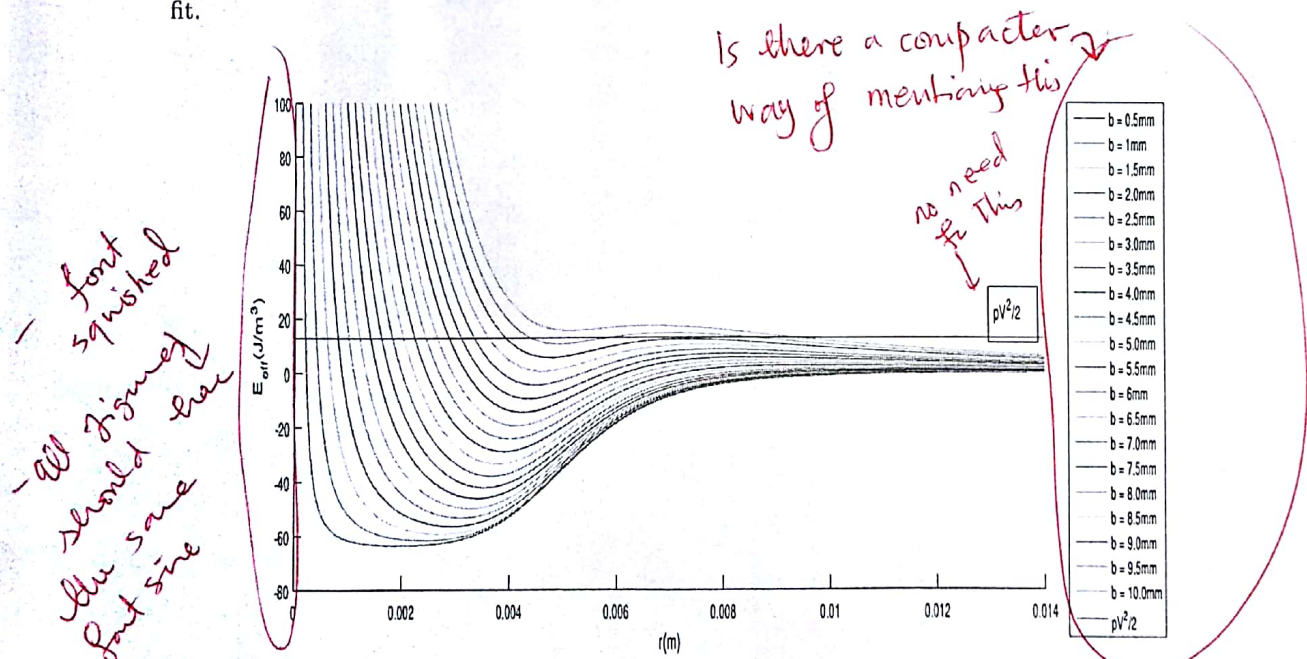 fit.
Is there a compacter
way of mentioning this
no need
for This
- font
squished
- all figures
should have
the same
font size
100
80
60
40
20
0
-20
-40
-60
-80
E_eff (J/m³)
0
0.002
0.004
0.006
0.008
0.01
0.012
0.014
r(m)
ρV²/2
b = 0.5mm
b = 1mm
b = 1.5mm
b = 2.0mm
b = 2.5mm
b = 3.0mm
b = 3.5mm
b = 4.0mm
b = 4.5mm
b = 5.0mm
b = 5.5mm
b = 6mm
b = 6.5mm
b = 7.0mm
b = 7.5mm
b = 8.0mm
b = 8.5mm
b = 9.0mm
b = 9.5mm
b = 10.0mm
ρV²/2